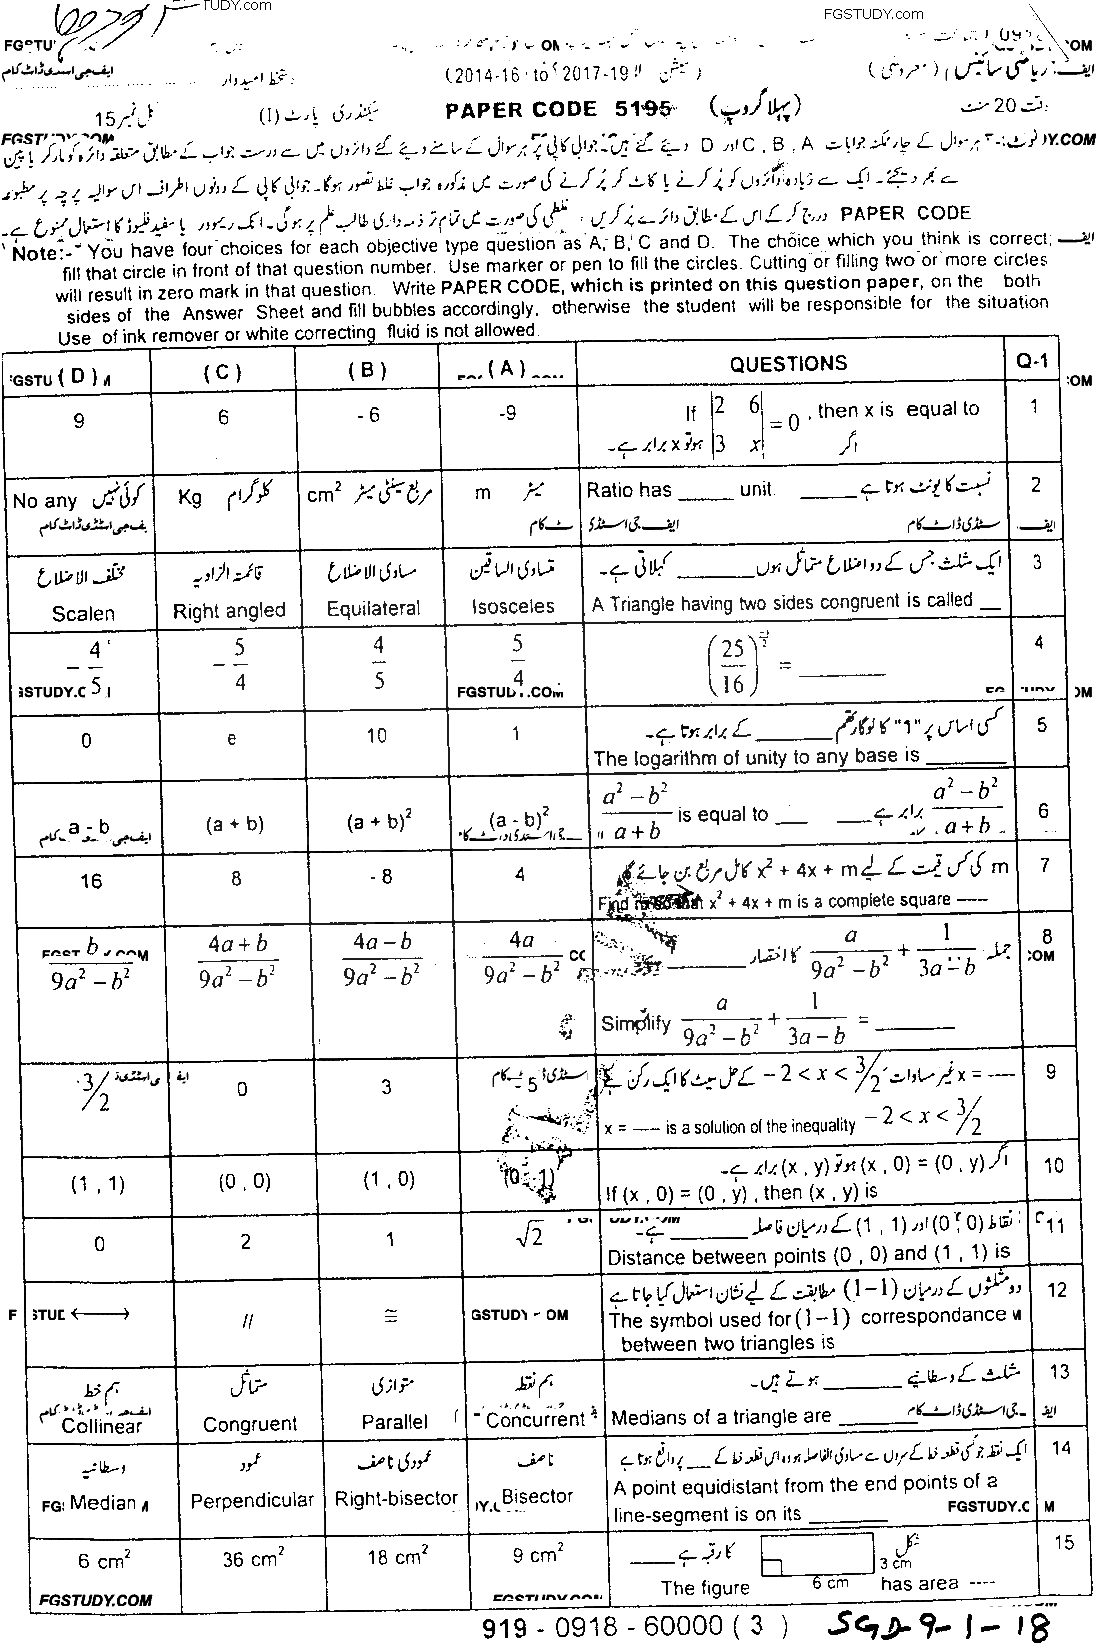 TUDY.com
FGSTUDY.com
(2014-16 to 2017-19) سیشن
ریاضی سائنس (معروضی)
دستخط امیدوار
PAPER CODE 5195 (پہلا گروپ)
سیکنڈری پارٹ (I)
کل نمبر 15
وقت 20 منٹ
نوٹ:- ہر سوال کے چار ممکنہ جوابات A ، B ، C اور D دیئے گئے ہیں۔ جوابی کاپی پر ہر سوال کے سامنے دیئے گئے دائروں میں سے درست جواب کے مطابق متعلقہ دائرہ کو مارکر یا پین
سے بھر دیجئے۔ ایک سے زیادہ دائروں کو پُر کرنے یا کاٹ کر پُر کرنے کی صورت میں مذکورہ جواب غلط تصور ہوگا۔ جوابی کاپی کے دونوں اطراف اس سوالیہ پرچہ پر مطبوعہ
PAPER CODE درج کر کے اس کے مطابق دائرے پُر کریں ، غلطی کی صورت میں تمام تر ذمہ داری طالب علم پر ہوگی۔ انک ریموور یا سفید فلیوڈ کا استعمال ممنوع ہے۔
Note:- You have four choices for each objective type question as A, B, C and D. The choice which you think is correct;
fill that circle in front of that question number. Use marker or pen to fill the circles. Cutting or filling two or more circles
will result in zero mark in that question. Write PAPER CODE, which is printed on this question paper, on the both
sides of the Answer Sheet and fill bubbles accordingly, otherwise the student will be responsible for the situation
Use of ink remover or white correcting fluid is not allowed.
(D) (C) (B) (A) QUESTIONS Q-1
9 6 -6 -9 If |2 6; 3 x| = 0 , then x is equal to 1
اگر ہو تو x برابر ہے۔
No any کوئی نہیں Kg کلوگرام cm² مربع سینٹی میٹر m میٹر Ratio has _____ unit. نسبت کا یونٹ ہوتا ہے _____ 2
مختلف الاضلاع قائمۃ الزاویہ مساوی الاضلاع متساوی الساقین ایک مثلث جس کے دو اضلاع متماثل ہوں ______ کہلاتی ہے۔ 3
Scalen Right angled Equilateral Isosceles A Triangle having two sides congruent is called __
-4/5 -5/4 4/5 5/4 (25/16)^(-1/2) = ________ 4
0 e 10 1 کسی اساس پر "1" کا لوگارتھم ______ کے برابر ہوتا ہے۔ 5
The logarithm of unity to any base is _______
a - b (a + b) (a + b)² (a - b)² (a² – b²)/(a + b) is equal to __ (a² – b²)/(a + b) برابر ہے __ 6
16 8 -8 4 m کی کس قیمت کے لیے x² + 4x + m کامل مربع بن جائے گا 7
Find m so that x² + 4x + m is a complete square ----
b/(9a² – b²) (4a + b)/(9a² – b²) (4a – b)/(9a² – b²) 4a/(9a² – b²) جملہ a/(9a² – b²) + 1/(3a – b) کا اختصار ______ 8
Simplify a/(9a² – b²) + 1/(3a – b) = ______
3/2 0 3 5 x = ---- غیر مساوات -2 < x < 3/2 کے حل سیٹ کا ایک رکن ہے 9
x = ---- is a solution of the inequality -2 < x < 3/2
(1 , 1) (0 , 0) (1 , 0) (0 , 1) اگر (x , 0) = (0 , y) ہو تو (x , y) برابر ہے۔ 10
If (x , 0) = (0 , y) , then (x , y) is
0 2 1 √2 نقاط (0 , 0) اور (1 , 1) کے درمیان فاصلہ ______ ہے۔ 11
Distance between points (0 , 0) and (1 , 1) is
↔ // ≅ ~ دو مثلثوں کے درمیان (1–1) مطابقت کے لیے نشان استعمال کیا جاتا ہے 12
The symbol used for (1–1) correspondance
between two triangles is
ہم خط متماثل متوازی ہم نقطہ مثلث کے وسطانیے ______ ہوتے ہیں۔ 13
Collinear Congruent Parallel Concurrent Medians of a triangle are ______
وسطانیہ عمود عمودی ناصف ناصف ایک نقطہ جو کسی قطعہ خط کے سروں سے مساوی الفاصلہ ہو وہ اس قطعہ خط کے __ پر واقع ہوتا ہے 14
Median Perpendicular Right-bisector Bisector A point equidistant from the end points of a
line-segment is on its _______
6 cm² 36 cm² 18 cm² 9 cm² شکل 3 cm کا رقبہ ہے ____ 15
The figure 6 cm has area ----
FGSTUDY.COM
919 - 0918 - 60000 ( 3 ) SGD-9-1-18